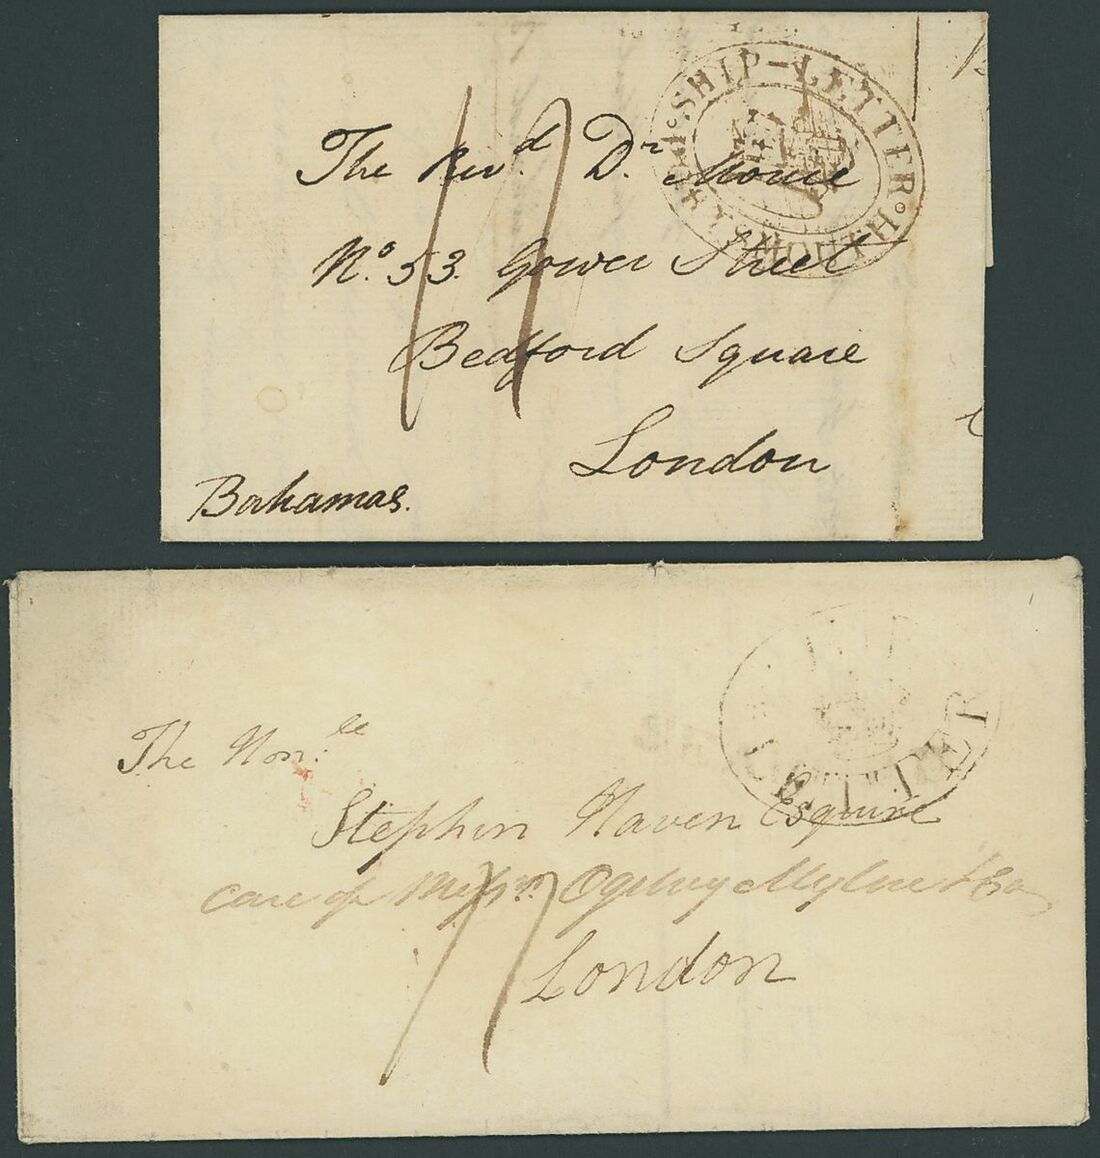 SHIP-LETTER
The Revd Dr
No. 53. Gower Street
Bedford Square
London
Bahamas.
The Honble
LETTER
Stephen Haven Esquire
care of Messrs Ogilvy Mylne & Co
London